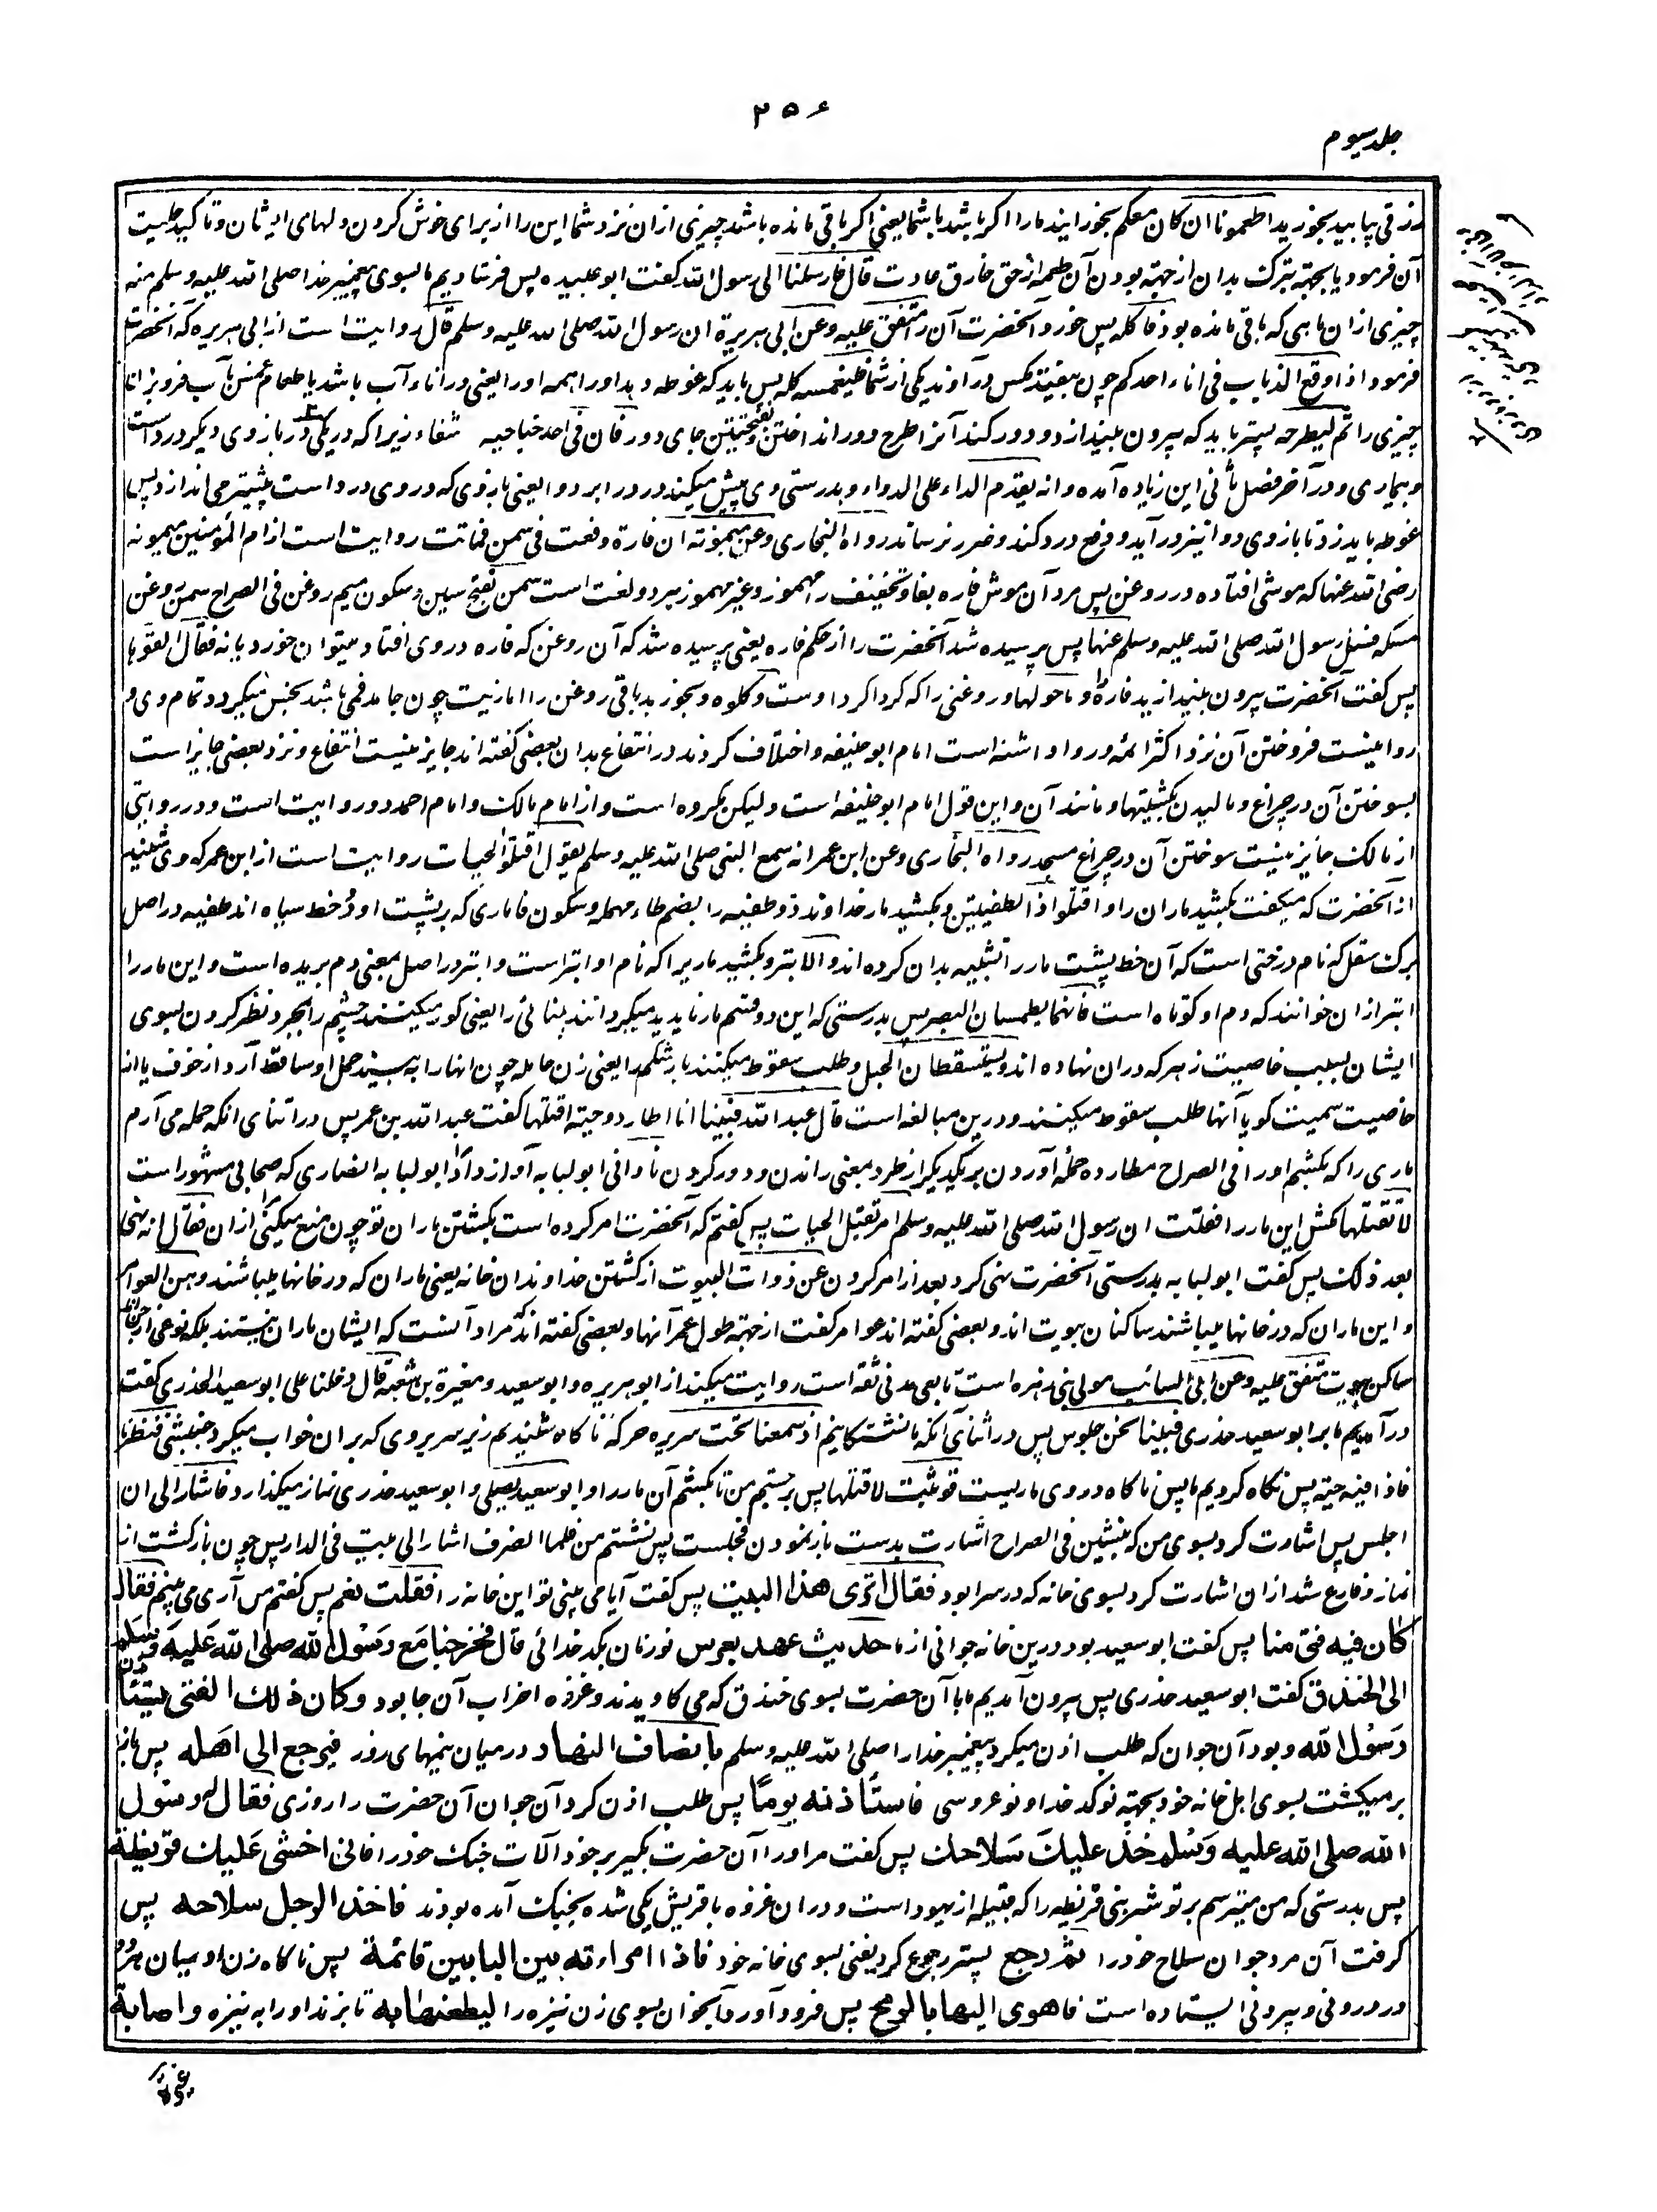 ۲۵۶
جلد سیوم
رزقی پیابید بخورید اطعمونا ان کان معکم بخورانید مارا اگر باشد باشما یعنی اگر باقی مانده باشد چیزی ازان نزد شما این را از برای خوش کردن دلهای ایشان و تاکید حلیت
آن فرمود یا بجهة تبرک بدان از جهة بودن آن طعمه از حق خارق عادت قال فارسلنا الی رسول الله گفت ابو عبیده پس فرستادیم ما بسوی پیغمبر خدا صلی الله علیه وسلم منه
چیزی ازان ماهی که باقی مانده بود فاکله پس خورد آنحضرت آن را متفق علیه وعن ابی هریرة ان رسول الله صلی الله علیه وسلم قال روایت است از ابی هریره که آنحضرت
فرمود اذا وقع الذباب فی اناء احدکم چون بیفتد مگس در آوند یکی از شما فلیغمسه کله پس باید که غوطه دهد اورا همه اورا یعنی در اناء آب باشد یا طعام غمس بآب فرو بردن
چیزی را ثم لیطرحه پستر باید که بیرون بیندازد و دور کند آنرا طرح دور انداختن و بفتحتین جای دور فان فی احد جناحیه شفاء زیرا که در یکی از دو بازوی دیگر درد است
وبیماری و در آخر فصل ثانی این زیاده آمده وانه یقدم الداء علی الدواء و بدرستی وی پیش میکند درد را بر دوا یعنی بازوی که دروی درد است پیشتر می اندازد پس
غوطه باید زد تا بازوی دوا نیز درآید و دفع درد کند و ضرر نرساند رواه البخاری وعن میمونة ان فارة وقعت فی سمن فماتت روایت است از ام المؤمنین میمونه
رضی الله عنها که موشی افتاده در روغن پس مرد آن موش فاره بفا و تخفیف را مهموز و غیر مهموز هر دو لغت است سمن بفتح سین و سکون میم روغن فی الصراح سمن روغن
مسکه فسئل رسول الله صلی الله علیه وسلم عنها پس پرسیده شد آنحضرت را از حکم فاره یعنی پرسیده شد که آن روغن که فاره دروی افتاد میتوان خورد یا نه فقال القوها
پس گفت آنحضرت بیرون بیندازید فاره را و ما حولها و روغنی را که گرداگرد اوست و کلوه و بخورید باقی روغن را اما زیت چون جامد نمی باشد نجس میگردد تمام وی و
روا نیست فروختن آن نزد اکثر ائمه و روا داشته است امام ابو حنیفه و اختلاف کردند در انتفاع بدان بعضی گفته اند جایز نیست انتفاع و نزد بعضی جایز است
بسوختن آن در چراغ و مالیدن بکشتیها و مانند آن و این قول امام ابو حنیفه است و لیکن مکروه است و از امام مالک و امام احمد دو روایت است و در روایتی
از مالک جایز نیست سوختن آن در چراغ مسجد رواه البخاری وعن ابن عمر انه سمع النبی صلی الله علیه وسلم یقول اقتلوا الحیات روایت است از ابن عمر که وی شنید
از آنحضرت که میگفت بکشید ماران را و اقتلوا ذا الطفیتین و بکشید مار خداوند دو طفیه را بضم طاء مهمله و سکون فا ماری که بر پشت او دو خط سیاه اند طفیه در اصل
برگ مقل که نام درختی است که آن خط پشت مار را تشبیه بدان کرده اند والابتر و بکشید مار یرا که نام او ابتر است و ابتر در اصل بمعنی دم بریده است و این مار را
ابتر ازان خوانند که دم او کوتاه است فانهما یطمسان البصر پس بدرستی که این دو قسم مار ناپدید میگردانند بنائی را یعنی کور میکنند چشم را بمجرد نظر کردن بسوی
ایشان بسبب خاصیت زهر که دران نهاده اند و یستسقطان الحبل و طلب سقوط میکنند بار شکم را یعنی زن حامله چون انها را به بیند حمل او ساقط آرد از خوف یا از
خاصیت سمیت گویا آنها طلب سقوط میکنند و درین مبالغه است قال عبد الله فبینا انا اطارد حیة اقتلها گفت عبد الله بن عمر پس در اثنای انکه حمله می آرم
ماری را که بکشم اورا فی الصراح مطارده حمله آوردن بر یکدیگر از طرد بمعنی راندن و دور کردن نادانی ابو لبابه آواز داد ابو لبابه انصاری که صحابی مشهور است
لا تقتلها مکش این مار را فقلت ان رسول الله صلی الله علیه وسلم امر بقتل الحیات پس گفتم که آنحضرت امر کرده است بکشتن ماران تو چون منع میکنی ازان فقال انه نهی
بعد ذلک پس گفت ابو لبابه بدرستی آنحضرت نهی کرد بعد از امر کردن عن ذوات البیوت از کشتن خداوندان خانه یعنی ماران که در خانها میباشند وهن العوامر
و این ماران که در خانها میباشند ساکنان بیوت اند و بعضی گفته اند عوامر گفت از جهة طول عمر آنها و بعضی گفته اند که مراد آنست که ایشان ماران نیستند بلکه نوعی از جن اند
ساکن بیوت متفق علیه وعن ابی السائب مولی بنی زهره است تابعی مدنی ثقه است روایت میکند از ابو هریره و ابو سعید و مغیرة بن شعبه قال دخلنا علی ابو سعید الخدری گفت
در آمدیم ما بر ابو سعید خدری فبینا نحن جلوس پس در اثنای آنکه ما نشستگانیم اذ سمعنا تحت سریره حرکة ناگاه شنیدیم زیر سریر وی که بران خواب میکرد جنبشی فنظرنا
فاذا فیه حیة پس نگاه کردیم ما پس ناگاه دروی ماریست فوثبت لاقتلها پس برجستم من تا بکشم آن مار را و ابو سعید یصلی و ابو سعید خدری نماز میگذارد فاشار الی ان
اجلس پس اشارت کرد بسوی من که بنشین فی الصراح اشارت بدست باز نمودن فجلست پس نشستم من فلما انصرف اشار الی بیت فی الدار پس چون بازگشت از
نماز و فارغ شد ازان اشارت کرد بسوی خانه که در سرا بود فقال اتری هذا البیت پس گفت آیا می بینی تو این خانه را فقلت نعم پس گفتم من آری می بینم فقال
کان فیه فتی منا پس گفت ابو سعید بود درین خانه جوانی از ما حدیث عهد بعرس نو زمان بکدخدائی قال فخرجنا مع رسول الله صلی الله علیه وسلم
الی الخندق گفت ابو سعید خدری پس بیرون آمدیم ما با آن حضرت بسوی خندق که می کاویدند و غزوه احزاب آن جا بود وکان ذلك الفتی یستأذن
رسول الله و بود آن جوان که طلب اذن میکرد پیغمبر خدا را صلی الله علیه وسلم بانصاف النهار در میان نیمهای روز فیرجع الی اهله پس باز
بر میگشت بسوی اهل خانه خود بجهة نو کدخدا و نو عروسی فاستأذنه یوما پس طلب اذن کرد آن جوان آن حضرت را روزی فقال له رسول
الله صلی الله علیه وسلم خذ علیك سلاحك پس گفت مر اورا آن حضرت بگیر بر خود آلات جنگ خود را فانی اخشی علیك قریظة
پس بدرستی که من میترسم بر تو شر بنی قریظه را که قبیله از یهود است و دران غزوه با قریش یکی شده بجنگ آمده بودند فاخذ الرجل سلاحه پس
گرفت آن مرد جوان سلاح خود را ثم رجع پستر رجوع کرد یعنی بسوی خانه خود فاذا امراته بین البابین قائمة پس ناگاه زن او میان هر دو
در درونی و بیرونی ایستاده است فاهوی الیها بالرمح پس فرود آورد آنجوان بسوی زن نیزه را لیطعنها به تا بزند اورا به نیزه واصابته
غیرة